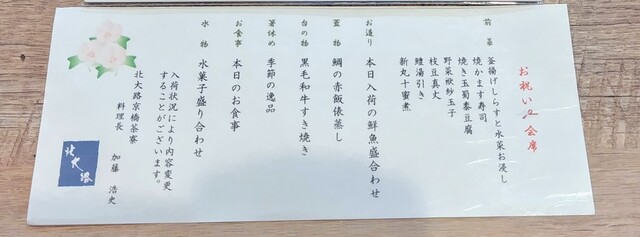 お祝い会席
前菜
釜揚げしらすと水菜お浸し
焼かます寿司
焼き玉蜀黍豆腐
野菜袱紗玉子
枝豆真丈
鱧湯引き
新丸十蜜煮
お造り 本日入荷の鮮魚盛合わせ
蓋物 鯛の赤飯俵蒸し
台の物 黒毛和牛すき焼き
箸休め 季節の逸品
お食事 本日のお食事
水物 水菓子盛り合わせ
入荷状況により内容変更
することがございます。
北大路京橋茶寮
料理長 加藤 浩史
北大路